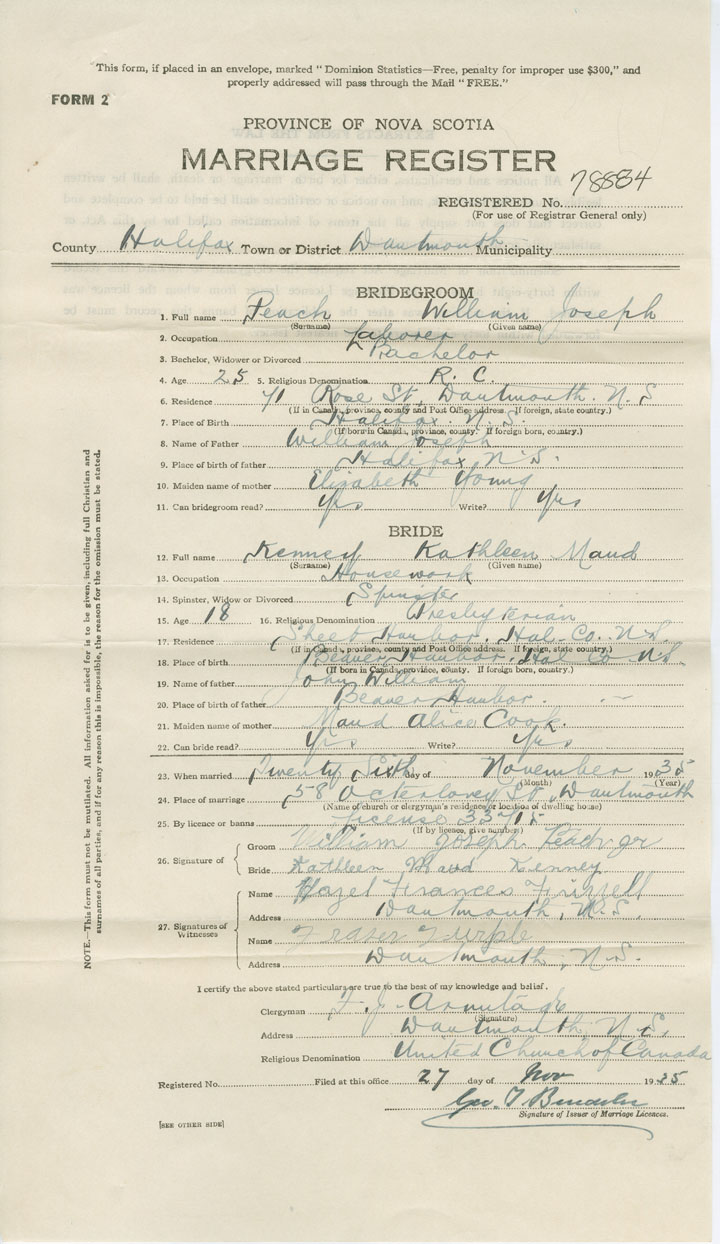 This form, if placed in an envelope, marked " Dominion Statistics—Free, penalty for improper use $300," and
properly addressed will pass through the Mail " FREE."
FORM 2
PROVINCE OF NOVA SCOTIA
MARRIAGE REGISTER
REGISTERED No. 78884
(For use of Registrar General only)
County Halifax Town or District Dartmouth Municipality
BRIDEGROOM
1. Full name Peach William Joseph
(Surname) (Given name)
2. Occupation Laborer
3. Bachelor, Widower or Divorced Bachelor
4. Age 25 5. Religious Denomination R. C.
6. Residence 71 Rose St. Dartmouth. N. S
(If in Canada, province, county and Post Office address. If foreign, state country.)
7. Place of Birth Halifax. N. S.
(If born in Canada, province, county. If foreign born, country.)
8. Name of Father William Joseph
9. Place of birth of father Halifax, N. S.
10. Maiden name of mother Elizabeth Young
11. Can bridegroom read? Yes Write? Yes
BRIDE
12. Full name Kenney Kathleen Maud
(Surname) (Given name)
13. Occupation Housework
14. Spinster, Widow or Divorced Spinster
15. Age 18 16. Religious Denomination Presbyterian
17. Residence Sheet Harbor, Hal. Co. N. S.
(If in Canada, province, county and Post Office address. If foreign, state country.)
18. Place of birth Beaver Harbor. Hal Co N.S.
(If born in Canada, province, county. If foreign born, country.)
19. Name of father John William
20. Place of birth of father Beaver Harbor.
21. Maiden name of mother Maud Alice Cook.
22. Can bride read? Yes Write? Yes
23. When married Twenty Sixth day of November 1935
(Month) (Year)
24. Place of marriage 58 Octerloney St., Dartmouth
(Name of church or clergyman's residence or location of dwelling house)
25. By licence or banns License 33715
(If by licence, give number)
26. Signature of
Groom William Joseph Peach jr
Bride Kathleen Maud Kenney
27. Signatures of Witnesses
Name Hazel Frances
Address Dartmouth, N. S.
Name Fraser Turple
Address Dartmouth, N. S.
I certify the above stated particulars are true to the best of my knowledge and belief.
Clergyman F. J. Armitage
(Signature)
Address Dartmouth, N. S.
Religious Denomination United Church of Canada
Registered No. Filed at this office 27 day of Nov 1935
Geo. T
Signature of Issuer of Marriage Licences.
[SEE OTHER SIDE]
NOTE.—This form must not be mutilated. All information asked for is to be given, including full Christian and
surnames of all parties, and if for any reason this is impossible, the reason for the omission must be stated.